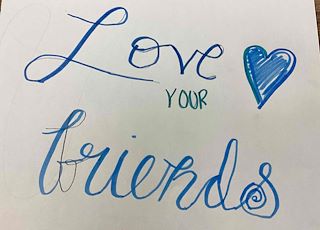 Love
YOUR
friends